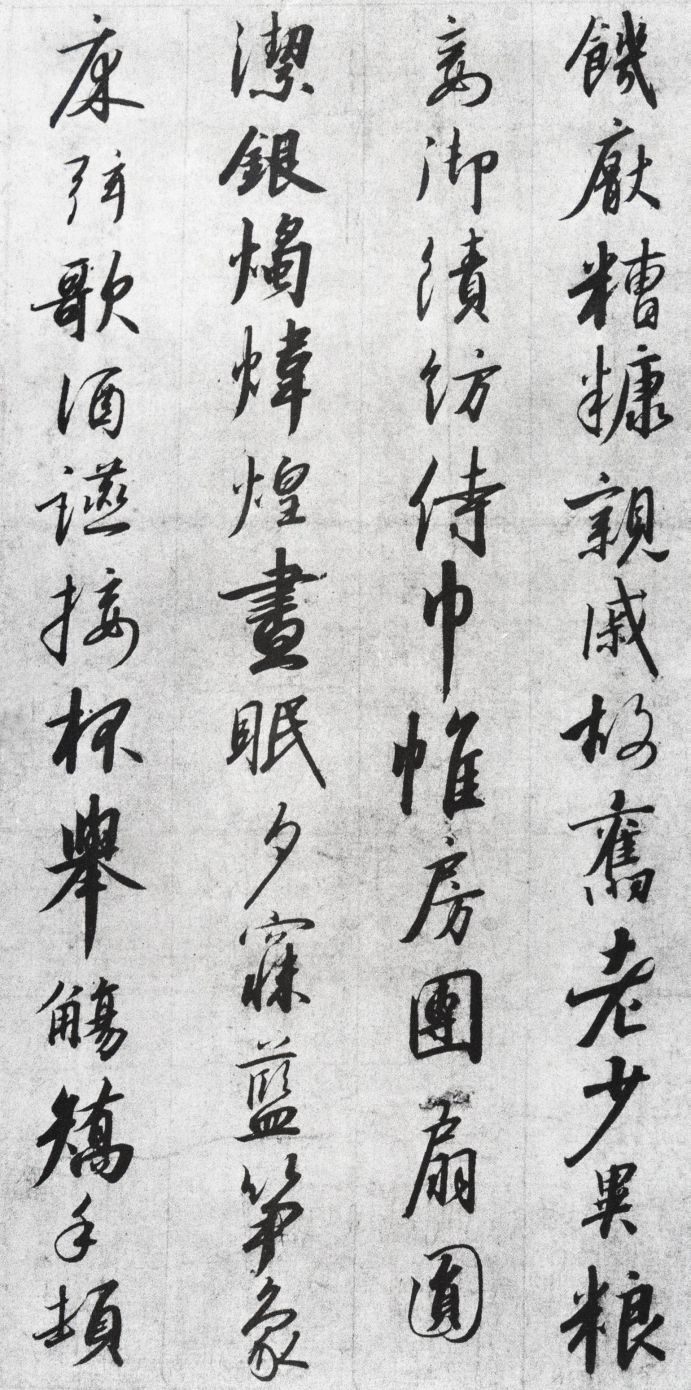 饑厭糟糠親戚故舊老少異粮
妾御績紡侍巾帷房團扇圓
潔銀燭煒煌晝眠夕寐藍笋象
床弦歌酒讌接杯舉觴矯手頓